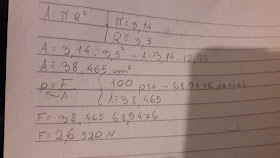 A = π R² { π = 3,14
R = 3,5
A = 3,14 . 3,5² ∴ A = 3,14 . 12,25
A = 38,465 cm²
P = F/A { 100 psi = 689476
A = 38,465
F = 38,465 . 689476
F = 26,520 N